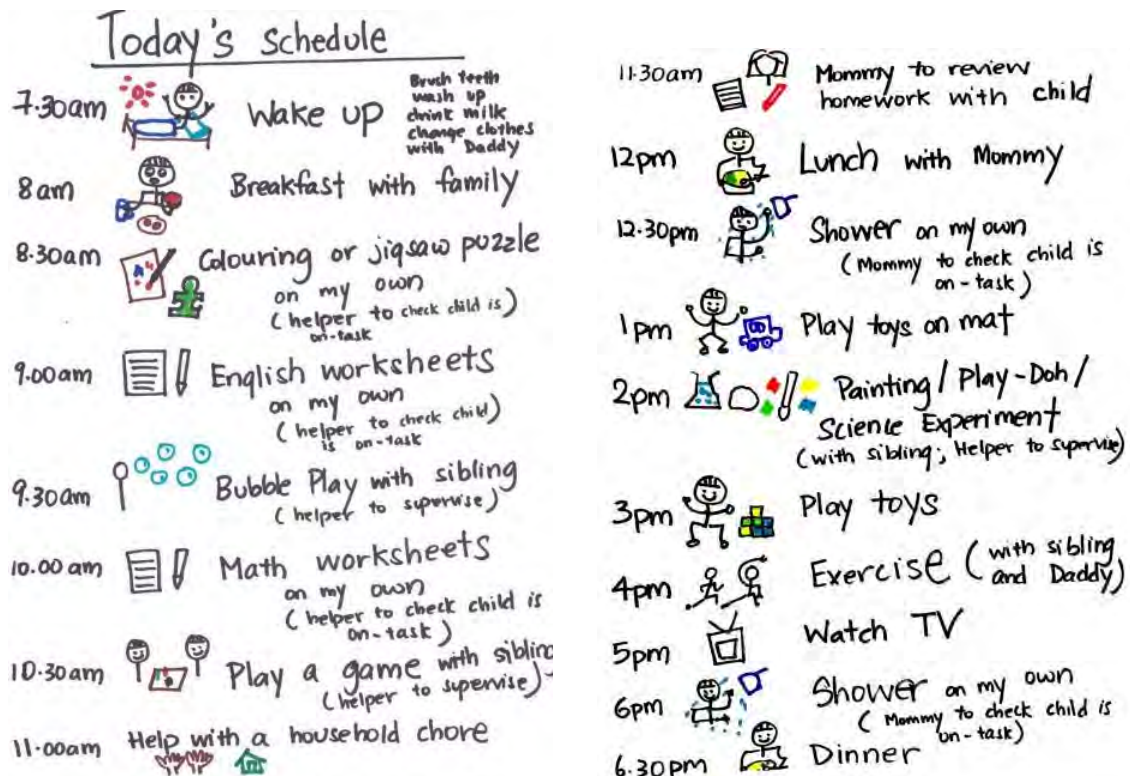 Today's schedule
7.30am Wake up
Brush teeth
wash up
drink milk
change clothes
with Daddy
8am Breakfast with family
8.30am Colouring or jigsaw puzzle
on my own
(helper to check child is)
on-task
9.00am English worksheets
on my own
(helper to check child)
is on-task
9.30am Bubble Play with sibling
(helper to supervise)
10.00am Math worksheets
on my own
(helper to check child is
on-task)
10.30am Play a game with sibling
(helper to supervise)
11.00am Help with a household chore
11.30am Mommy to review
homework with child
12pm Lunch with Mommy
12.30pm Shower on my own
(Mommy to check child is
on-task)
1pm Play toys on mat
2pm Painting / Play-Doh /
Science Experiment
(with sibling; Helper to supervise)
3pm Play toys
4pm Exercise (with sibling
and Daddy)
5pm Watch TV
6pm Shower on my own
(Mommy to check child is
on-task)
6.30pm Dinner